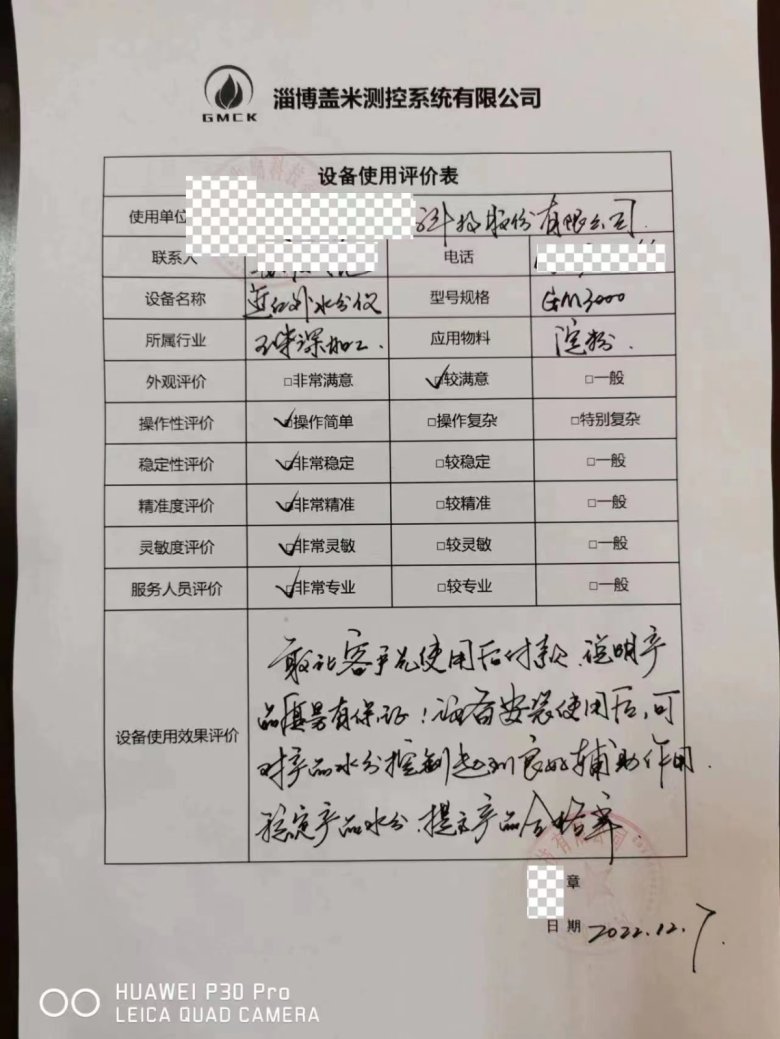 GMCK 淄博盖米测控系统有限公司
设备使用评价表
使用单位 科技股份有限公司
联系人 电话
设备名称 近红外水分仪 型号规格 GM3000
所属行业 玉米深加工. 应用物料 淀粉.
外观评价 □非常满意 ☑较满意 □一般
操作性评价 ☑操作简单 □操作复杂 □特别复杂
稳定性评价 ☑非常稳定 □较稳定 □一般
精准度评价 ☑非常精准 □较精准 □一般
灵敏度评价 ☑非常灵敏 □较灵敏 □一般
服务人员评价 ☑非常专业 □较专业 □一般
设备使用效果评价
敢让客户先使用后付款、说明产
品质量有保证!设备安装使用后,可
对产品水分控制起到良好辅助作用.
稳定产品水分、提高产品合格率
章
日期 2022.12.7
HUAWEI P30 Pro
LEICA QUAD CAMERA